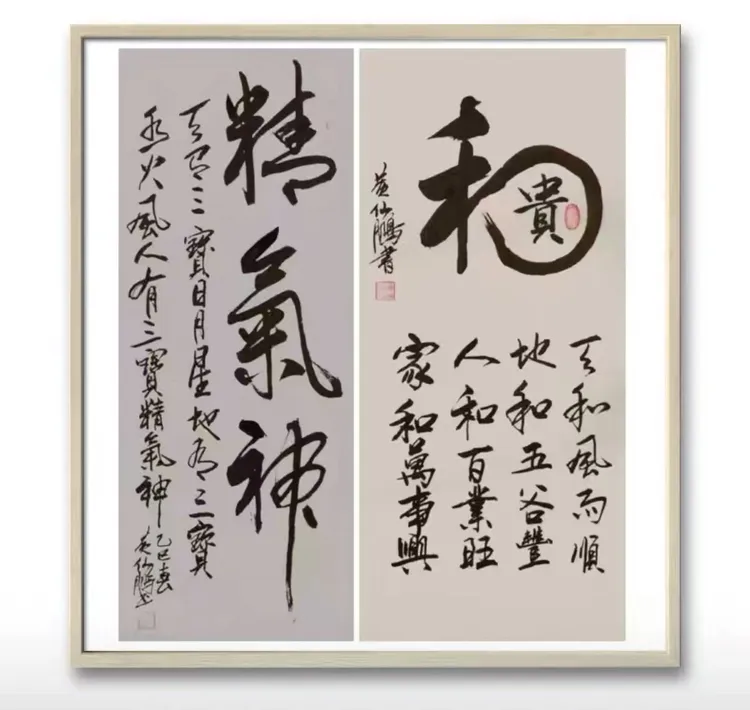 精氣神
天有三寶日月星地有三寶
水火風人有三寶精氣神
乙巳春
黄仙鵬书
和
貴
黄仙鵬書
天和風雨順
地和五谷豐
人和百業旺
家和萬事興